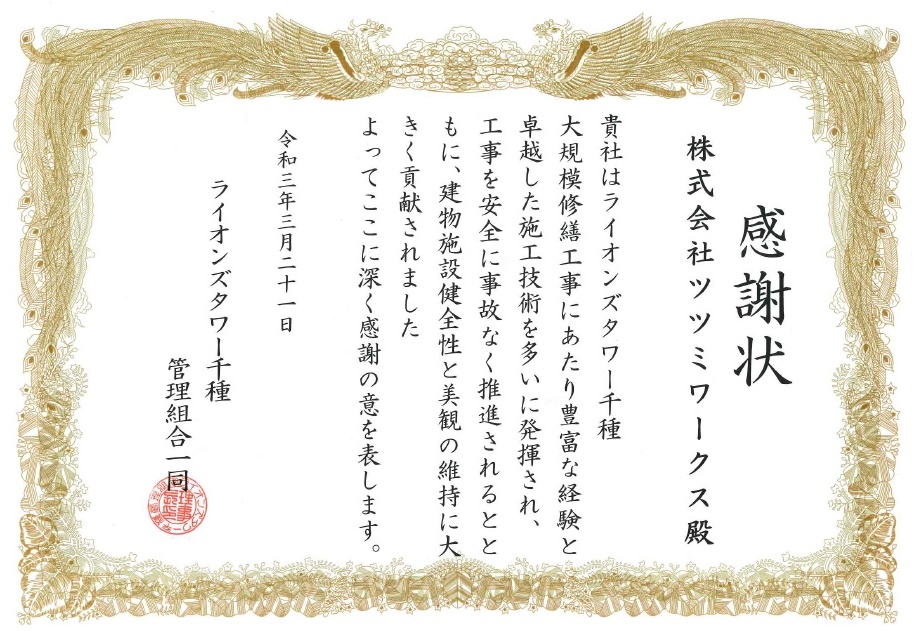 感謝状
株式会社ツツミワークス殿
貴社はライオンズタワー千種
大規模修繕工事にあたり豊富な経験と
卓越した施工技術を多いに発揮され、
工事を安全に事故なく推進されるとと
もに、建物施設健全性と美観の維持に大
きく貢献されました
よってここに深く感謝の意を表します。
令和三年三月二十一日
ライオンズタワー千種
管理組合一同